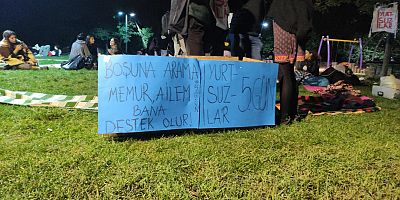 BOŞUNA ARAMA
MEMUR, AİLEM
BANA
DESTEK OLUR!
YURT-
SUZ-
LAR
5.GÜN